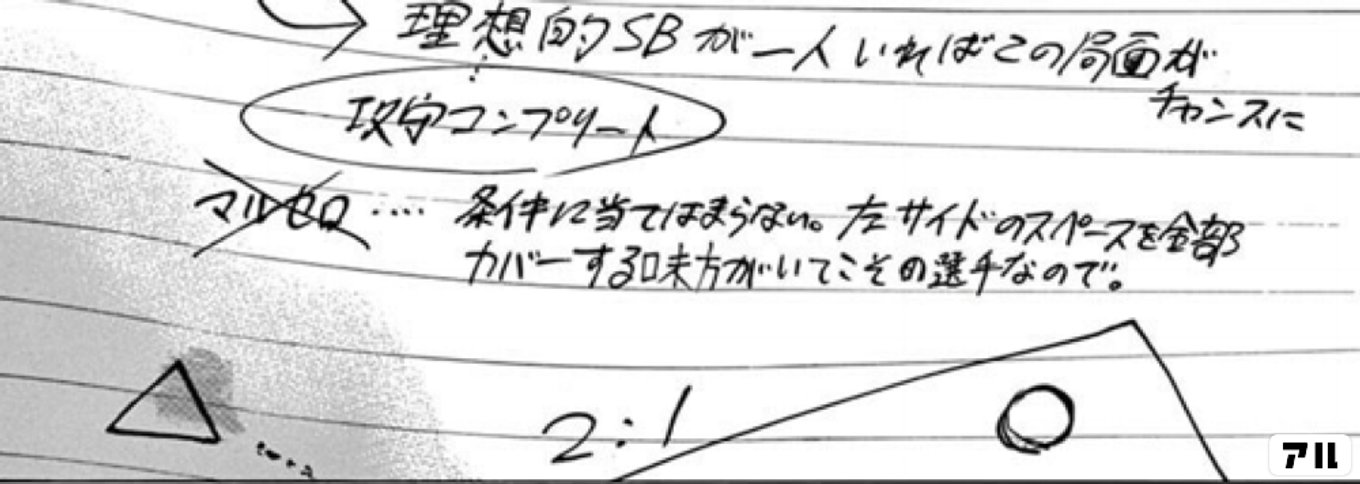 理想的SBが一人いればこの局面が
チャンスに
攻守コンプリート
マルセロ‥‥条件に当てはまらない。左サイドのスペースを全部
カバーする味方がいてこその選手なので。
2:1
アル